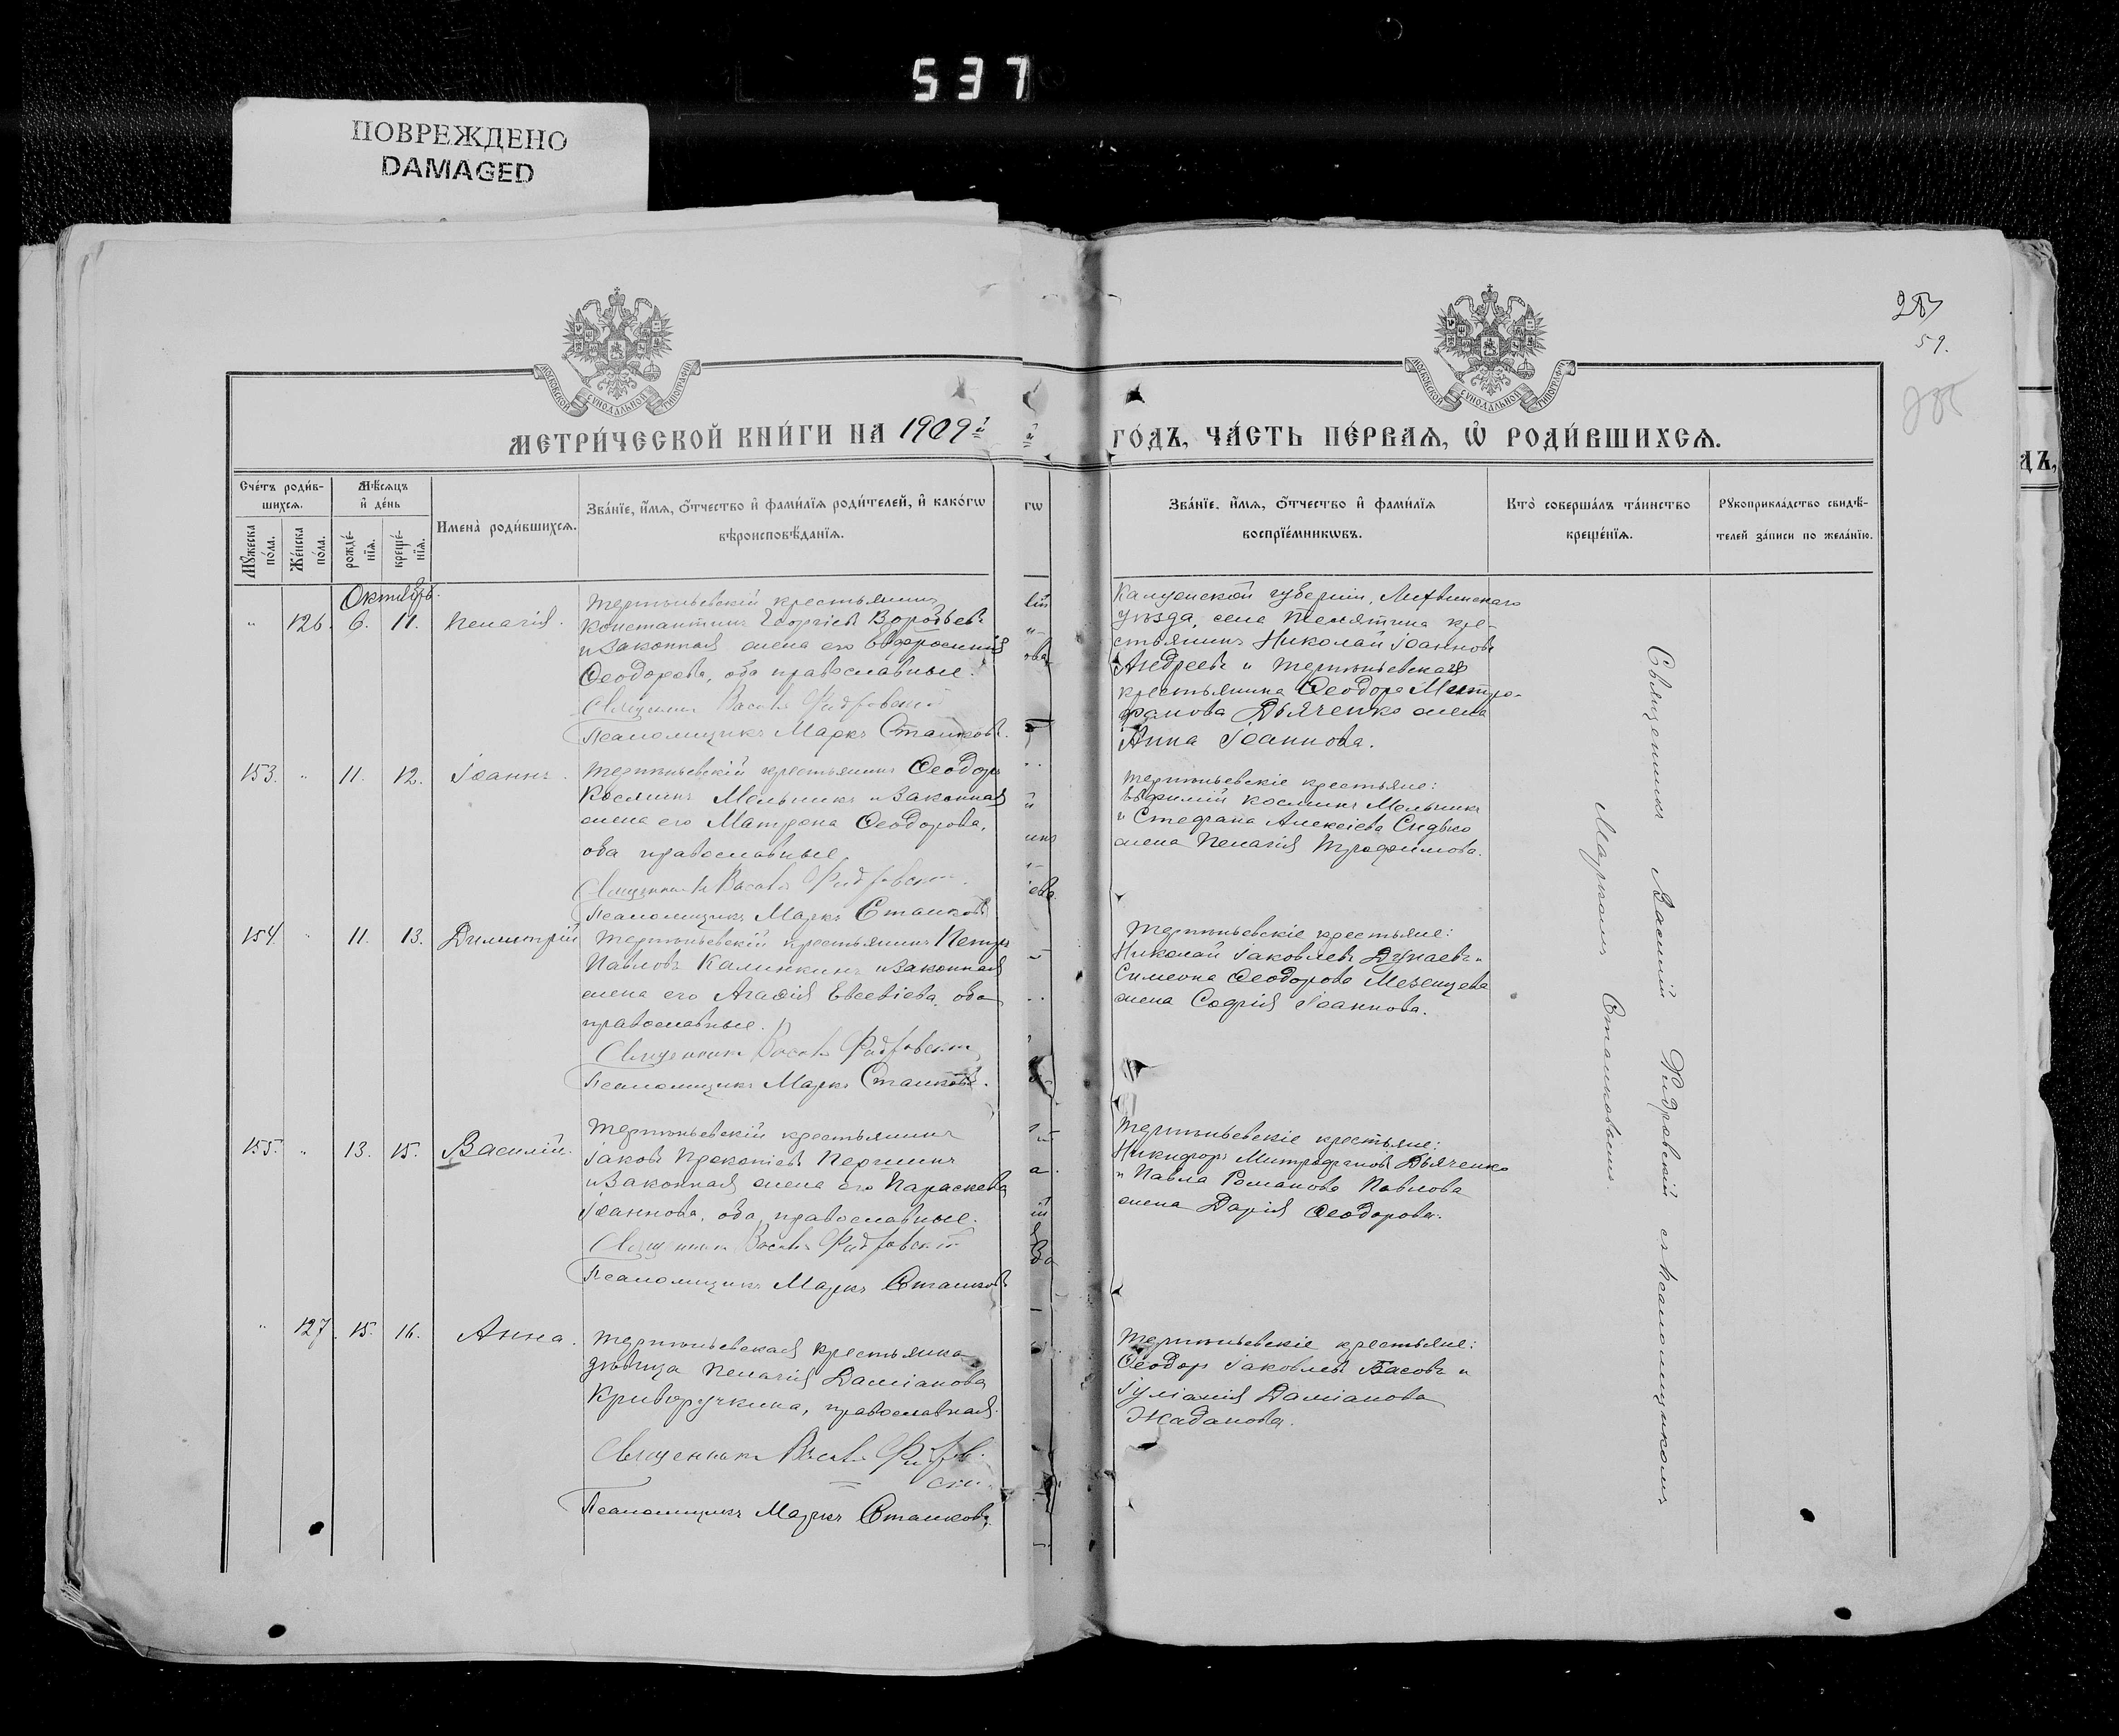 537
ПОВРЕЖДЕНО
DAMAGED
257
59.
МОСКОВСКОЙ СѴНОДАЛЬНОЙ ТИПОГРАФІИ
МОСКОВСКОЙ СѴНОДАЛЬНОЙ ТИПОГРАФІИ
МЕТРИ́ЧЕСКОЙ КНИ́ГИ НА 1909й
ГО́ДЪ, ЧА́СТЬ ПЕ́РВАѦ, Ѡ҆ РОДИ́ВШИХСѦ.
Сче́тъ роди́в-
шихсѧ.
Мꙋ́жеска по́ла.
Же́нска по́ла.
Мѣ́сѧцъ
и҆ де́нь
рожде́-
нїѧ.
креще́-
нїѧ.
Имена̀ роди́вшихсѧ.
Зва́нїе, и҆́мѧ, ѻ҆́тчество и҆ фами́лїѧ роди́телей, и҆ како́гѡ
вѣроисповѣ́данїѧ.
Зва́нїе, и҆́мѧ, ѻ҆́тчество и҆ фами́лїѧ
воспрїе́мникѡвъ.
Кто̀ соверша́лъ та́инство
креще́нїѧ.
Рꙋкоприкла́дство свидѣ́-
телей за́писи по жела́нїю.
Октябрь.
" 126. 6. 11. Пелагія.
Тертъньевскій крестьянинъ
Константинъ Георгіевъ Воробьевъ
и законная жена его Евфросинія
Ѳеодорова, оба православные.
Священникъ Василій Фидровскій
Псаломщикъ Маркъ Сташковъ.
Калужской губерніи, Лихвинскаго
уѣзда, села Телятина кре-
стьянинъ Николай Іоанновъ
Андреевъ и Тертъньевскаго
крестьянина Ѳеодора Митро-
фанова Дьяченко жена
Анна Іоаннова.
153. " 11. 12. Іоаннъ.
Тертъньевскій крестьянинъ Ѳеодоръ
Косминъ Мельникъ и законная
жена его Матрона Ѳеодорова,
оба православные
Священникъ Василій Фидровскій.
Псаломщикъ Маркъ Сташковъ
Тертъньевскіе крестьяне:
Евфимій Косминъ Мельникъ
и Стефана Алексіева Сидько
жена Пелагія Трофимова.
154. " 11. 13. Димитрій
Тертъньевскій крестьянинъ Петръ
Павловъ Калинкинъ и законная
жена его Агафія Евсевіева, оба
православные.
Священникъ Василій Фидровскій
Псаломщикъ Маркъ Сташковъ.
Тертъньевскіе крестьяне:
Николай Іаковлевъ Дунаевъ и
Симеона Ѳеодорова Мезенцева
жена Софія Іоаннова.
155. " 13. 15. Василій.
Тертъньевскій крестьянинъ
Іаковъ Прокопіевъ Першинъ
и законная жена его Параскева
Іоаннова, оба православные.
Священникъ Василій Фидровскій
Псаломщикъ Маркъ Сташковъ
Тертъньевскіе крестьяне:
Никифоръ Митрофановъ Дьяченко
и Павла Романова Павлова
жена Дарія Ѳеодорова.
" 127. 15. 16. Анна.
Тертъньевская крестьянка
дѣвица Пелагія Даміанова
Криворучкина, православная.
Священникъ Василій Фидров-
скій.
Псаломщикъ Маркъ Сташковъ.
Тертъньевскіе крестьяне:
Ѳеодоръ Іаковлевъ Басовъ и
Іуліанія Даміанова
Жаданова.
Священникъ Василій Фидровскій съ псаломщикомъ
Маркомъ Сташковымъ.